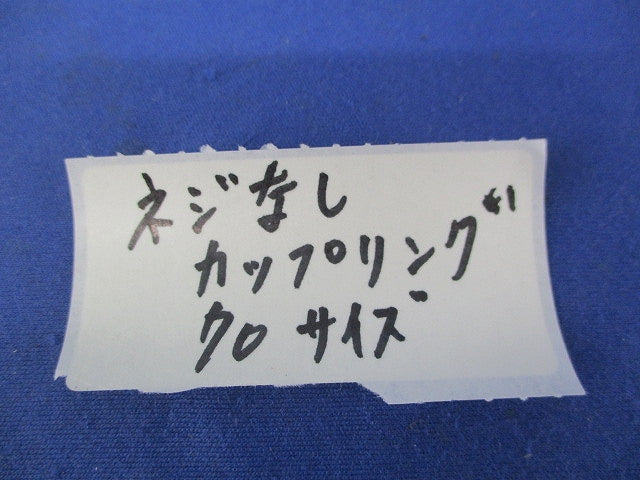 ネジなし
カップリング
70 サイズ